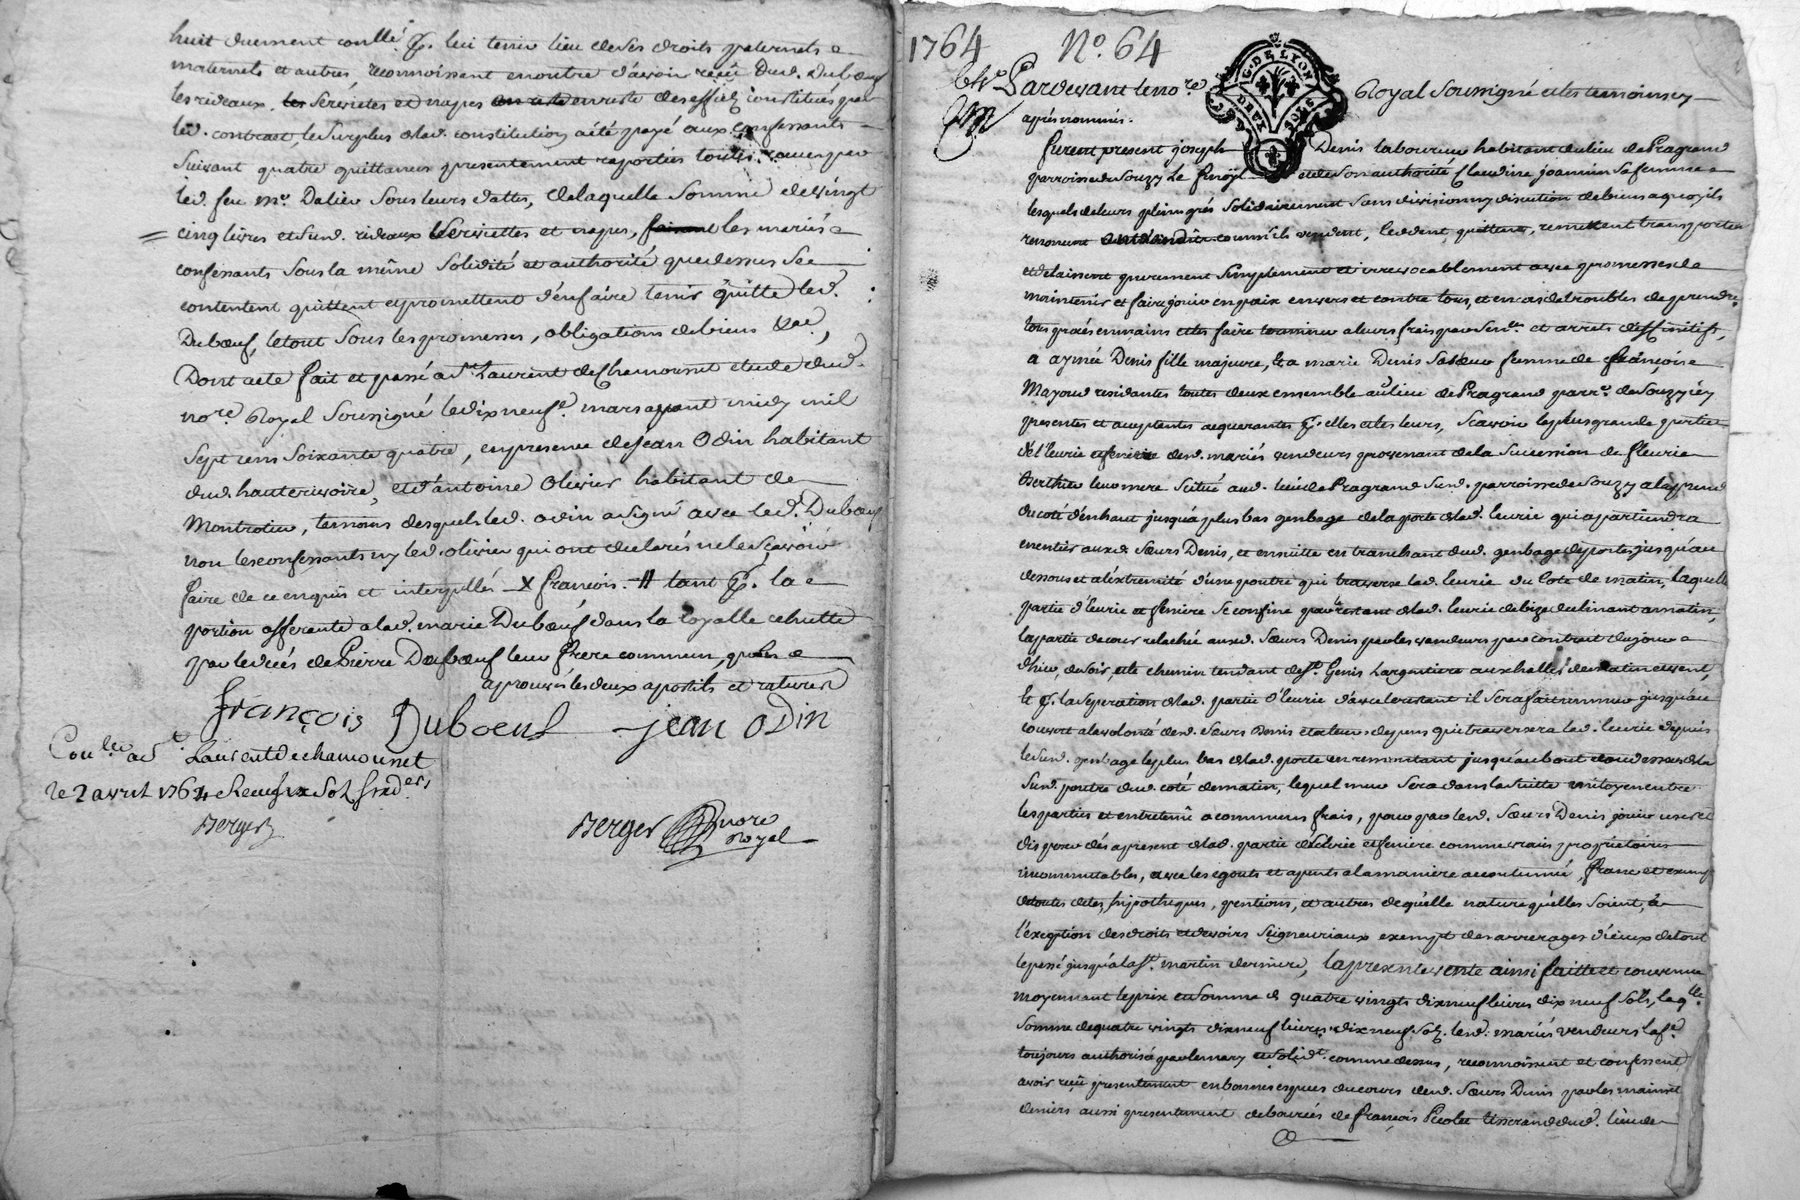 huit duement conllé p. leur tenir lieu de ses droits paternels e
maternels et autres, reconnoissent en outre d'avoir reçû dud. Duboeuf
les rideaux, les serviettes et napes en reste des effets constitués par
led. contract, le surplus dela d. constitution a été payé aux confessants
suivant quatre quittances presentement raportées toutes
led. feu me. Dalier sous leurs dattes, de laquelle somme de vingt
cinq livres et sus d. rideaux serviettes et napes, les mariés
confessants sous la même solidité et authorité que dessus se
contentent quittent et promettent d'en faire tenir quitte led.
Duboeuf, le tout sous les promesses, obligations de biens &ae,
Dont acte fait et passé a st. Laurent de Chamousset etude dud.
nore Royal soussigné le dix neufe. mars avant midy mil
sept cens soixante quatre, en presence de Jean Odin habitant
dud. hauterivoire, et d'antoine Olivier habitant de
Montrotier, temoins desquels led. odin a signé avec led. Duboeuf
non les confessants ny led. olivier qui ont declarés ne le sçavoir
faire de ce enquis et interpellés X françois. # tant p. la
portion afferante a lad. marie Duboeuf dans la loyalle echutte
par le decés de Pierre Duboeuf leur frere commun,
aprouvés les deux apostils et ratures
françois Duboeuf jean Odin
Conllé a st. Laurent de chamousset
le 2 avril 1764
Berger
Berger nore
Royal
1764 No. 64
G. DE LYON
DEUX SOLS
Pardevant le nore Royal soussigné et les temoins cy
après nommés.
furent present joseph Denis laboureur habitant du lieu de Pragrand
parroisse de Souzy Le et de son authorité Claudine joannin sa femme
lesquels de leurs pleins grés solidairement sans division ny discution de biens a quoy ils
renoncent ont vendu comm'ils vendent, cedent, quittent, remettent transportent
et delaissent purement simplement et irrevocablement avec promesses de
maintenir et faire jouir en paix envers et contre tous, et en cas de troubles de prendre
tous procés en mains et les faire terminer a leurs frais par senes. et arrets deffinitifs,
a aymée Denis fille majeure, & a marie Denis sa soeur femme de françois
Mayoud residantes toutes deux ensemble au lieu de Pragrand parre. de Souzy icy
presentes et acceptantes acquerantes p. elles et les leurs, sçavoir la plus grande partie
d'Ecurie et feniere desd. mariés vendeurs provenant de la succession de fleurie
Berthier leur mere scitué aud. lieu de Pragrand susd. parroisse de Souzy a la prendre
du coté d'en haut jusqu'a plus bas genbage de la porte de lad. ecurie qui apartiendra
en entier auxd. soeurs Denis, et en suitte en tranchant dud. genbage de porte jusqu'au
dessous et a l'extremité d'une poutre qui traverse lad. ecurie du coté de matin, laquelle
partie d'Ecurie et feniere se confine par le restant de lad. ecurie de bize declinant a matin,
la partie de cour relachée auxd. soeurs Denis par les vendeurs par contract du jour
d'hier, de soir, et le chemin tendant de st. Genis Largentiere aux halles de matin et vent,
Et p. la separation de lad. partie d'Ecurie d'avec le restant il sera fait un mur jusqu'au
couvert a la volonté desd. soeurs Denis et a leurs depens qui traversera lad. ecurie depuis
le susd. genbage le plus bas de lad. porte en remontant jusqu'au bout de la
susd. poutre dud. coté de matin, lequel mur sera dans la suitte mitoyen entre
les parties et entretenû a communs frais, pour par lesd. soeurs Denis jouir user et
disposer dés a present de lad. partie d'Ecurie et feniere comme vrais proprietaires
incommutables, avec les egouts et a la maniere accoutumée, franc et exempt
de toutes dettes, hipotheques, pentions, et autres de qu'elle nature qu'elles soient, a
l'exception des droits et devoirs seigneuriaux exempt des arrerages d'iceux de tout
le passé jusqu'a la st. martin derniere, la presente vente ainsi faitte et convenue
moyennant le prix et somme de quatre vingts dix neuf livres dix neuf sols, laqlle.
somme de quatre vingts dix neuf livres dix neuf sols. lesd. mariés vendeurs la fe.
toujours authorisée par le mary et solidt. comme dessus, reconnoissent et confessent
avoir reçû presentement en bonnes especes du cours desd. soeurs Denis par les mains et
deniers aussi presentement debourcés de françois tisserand dud. lieu de